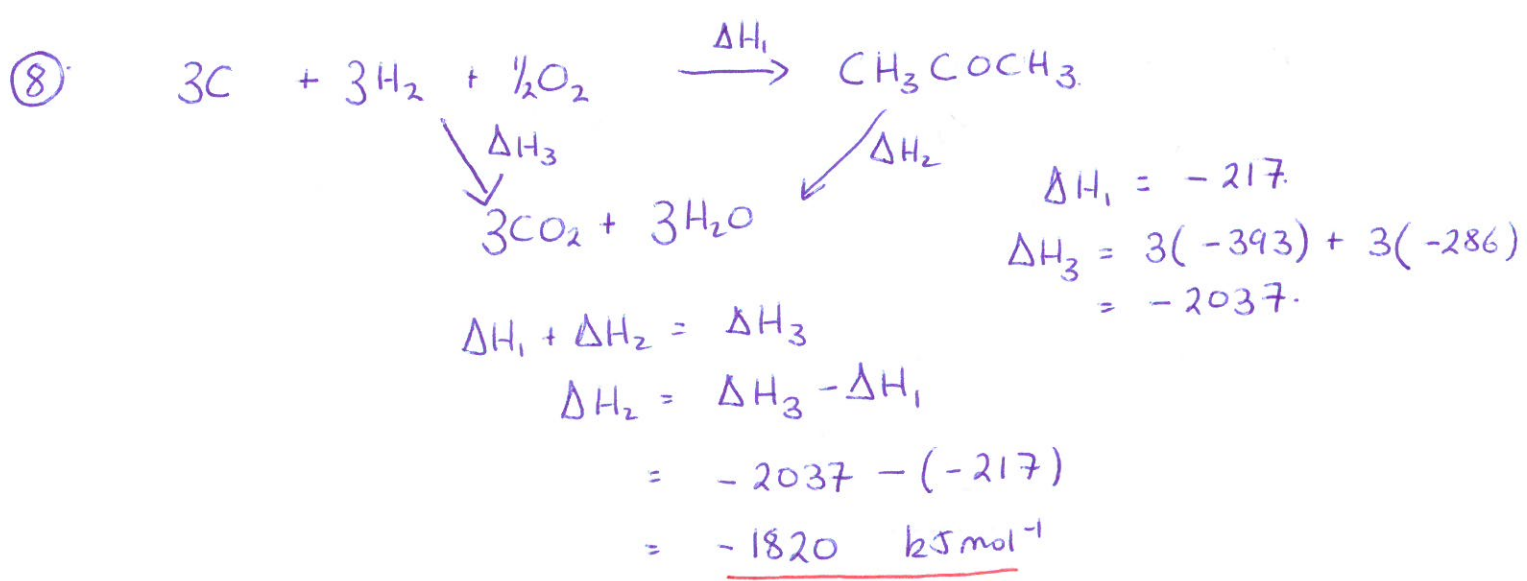 ΔH₁
⑧ 3C + 3H₂ + ½O₂ → CH₃COCH₃.
ΔH₃ ΔH₂
3CO₂ + 3H₂O
ΔH₁ = - 217.
ΔH₃ = 3(-393) + 3(-286)
= - 2037.
ΔH₁ + ΔH₂ = ΔH₃
ΔH₂ = ΔH₃ - ΔH₁
= - 2037 - (-217)
= - 1820 kJ mol⁻¹